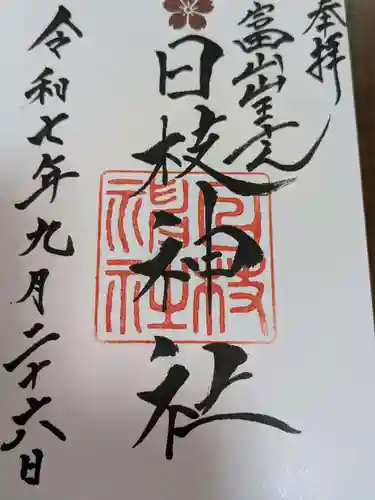 奉拝
富山山王さん
日枝神社
令和七年九月二十六日
日枝神社